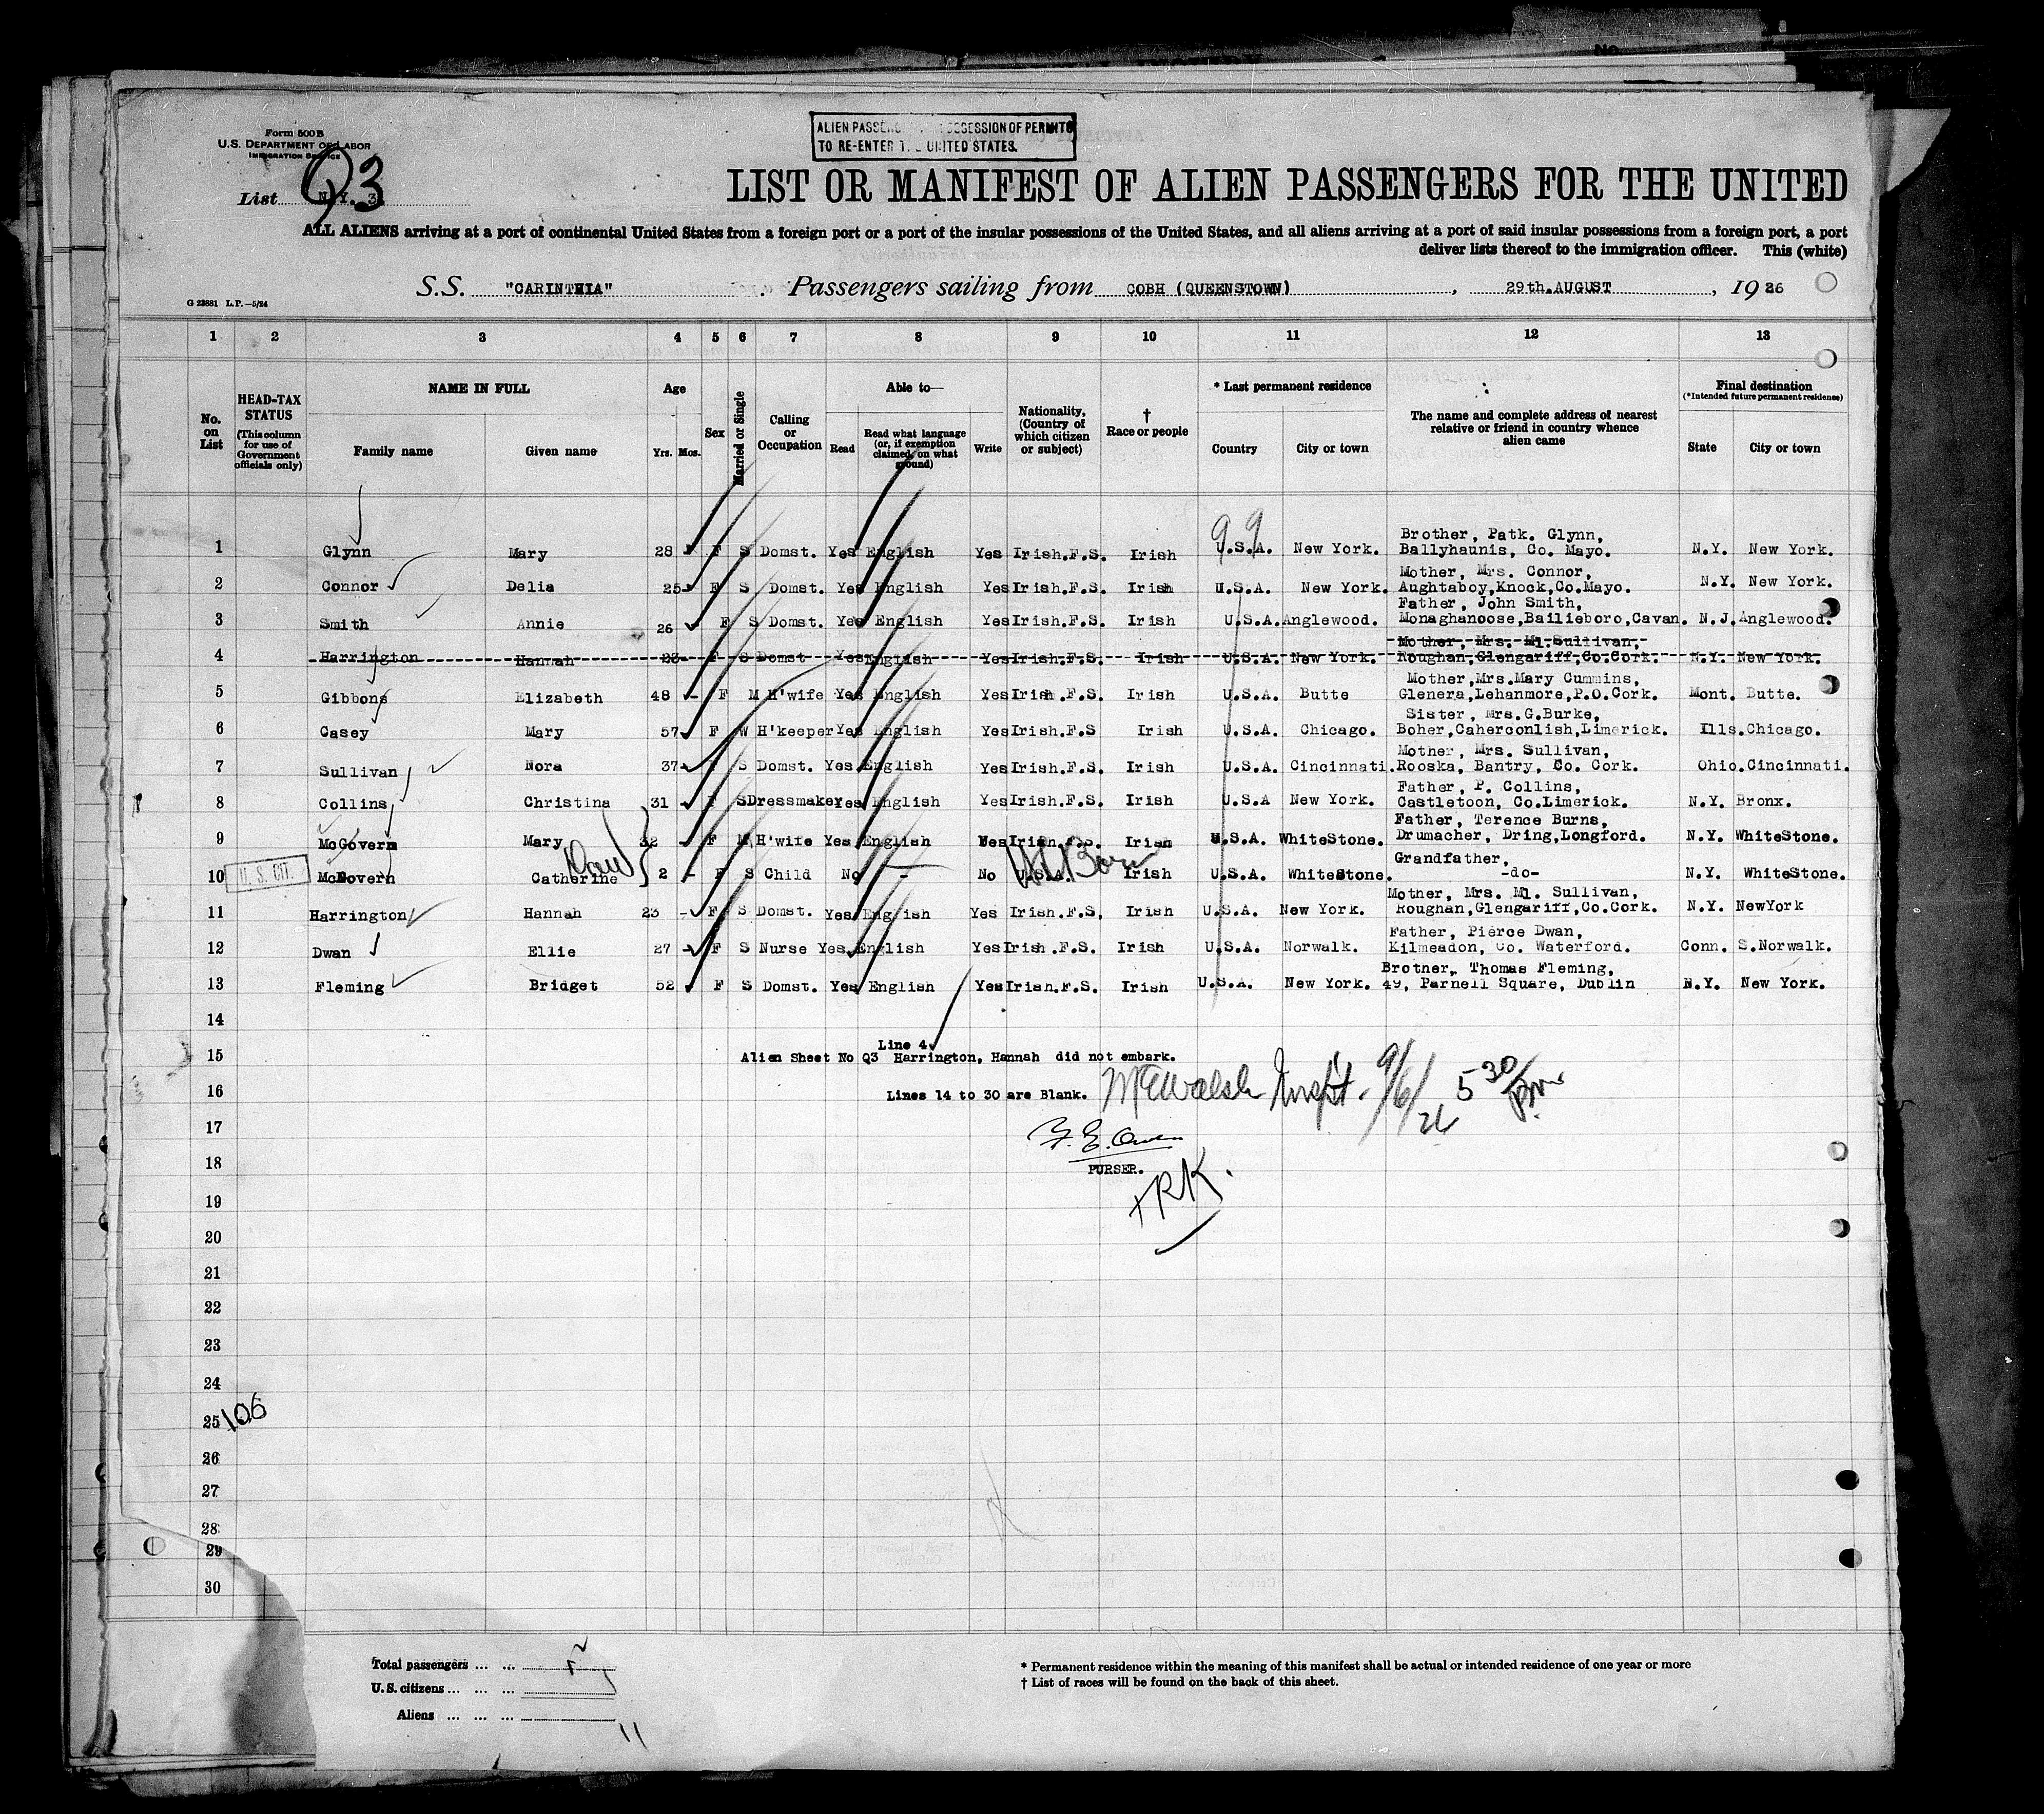 No.
Form 500B
U.S. DEPARTMENT OF LABOR
IMMIGRATION SERVICE
ALIEN PASSENG SSESSION OF PERMITS
TO RE-ENTER T UNITED STATES.
List N.Y. 3. Q3
LIST OR MANIFEST OF ALIEN PASSENGERS FOR THE UNITED
ALL ALIENS arriving at a port of continental United States from a foreign port or a port of the insular possessions of the United States, and all aliens arriving at a port of said insular possessions from a foreign port, a port
deliver lists thereof to the immigration officer. This (white)
G 23881 L.P.—5/24
S.S. "CARINTHIA" Passengers sailing from COBH (QUEENSTOWN), 29th.AUGUST, 1926
1 2 3 4 5 6 7 8 9 10 11 12 13
No. on List
HEAD-TAX STATUS
(This column for use of Government officials only)
NAME IN FULL
Family name Given name
Age
Yrs. Mos.
Sex
Married or Single
Calling or Occupation
Able to—
Read
Read what language (or, if exemption claimed, on what ground)
Write
Nationality, (Country of which citizen or subject)
† Race or people
* Last permanent residence
Country City or town
The name and complete address of nearest relative or friend in country whence alien came
Final destination
(*Intended future permanent residence)
State City or town
99
Brother, Patk. Glynn,
1 Glynn Mary 28 F S Domst. Yes English Yes Irish.F.S. Irish U.S.A. New York. Ballyhaunis, Co. Mayo. N.Y. New York.
Mother, Mrs. Connor,
2 Connor Delia 25 F S Domst. Yes English Yes Irish.F.S. Irish U.S.A. New York. Aughtaboy,Knock,Co.Mayo. N.Y. New York.
Father, John Smith,
3 Smith Annie 26 F S Domst. Yes English Yes Irish.F.S. Irish U.S.A. Anglewood. Monaghanoose,Bailieboro,Cavan. N.J. Anglewood.
Mother, Mrs. Ml.Sullivan,
4 Harrington Hannah 23 F S Domst Yes English Yes Irish.F.S. Irish U.S.A. New York. Roughan,Glengariff,Co.Cork. N.Y. New York.
Mother,Mrs.Mary Cummins,
5 Gibbons Elizabeth 48 - F M H'wife Yes English Yes Irish.F.S. Irish U.S.A. Butte Glenera,Lehanmore,P.O.Cork. Mont. Butte.
Sister, Mrs.G.Burke,
6 Casey Mary 57 F W H'keeper Yes English Yes Irish.F.S Irish U.S.A. Chicago. Boher,Caherconlish,Limerick. Ills. Chicago.
Mother, Mrs. Sullivan,
7 Sullivan Nora 37 F S Domst. Yes English Yes Irish.F.S. Irish U.S.A. Cincinnati. Rooska, Bantry, Co. Cork. Ohio. Cincinnati.
Father, P. Collins,
8 Collins Christina 31 - F S Dressmaker Yes English Yes Irish.F.S. Irish U.S.A New York. Castletoon, Co.Limerick. N.Y. Bronx.
Father, Terence Burns,
9 McGovern Mary 32 - F M H'wife Yes English Yes Irish.F.S. Irish U.S.A. WhiteStone. Drumacher, Dring,Longford. N.Y. WhiteStone.
Grandfather,
10 U. S. CIT. McGovern Catherine 2 - F S Child No - No U.S.A. US Born Irish U.S.A. WhiteStone. -do- N.Y. WhiteStone.
Mother, Mrs. Ml. Sullivan,
11 Harrington Hannah 23 - F S Domst. Yes English Yes Irish.F.S. Irish U.S.A. New York. Roughan,Glengariff,Co.Cork. N.Y. NewYork
Father, Pierce Dwan,
12 Dwan Ellie 27 - F S Nurse Yes English Yes Irish.F.S. Irish U.S.A. Norwalk. Kilmeadon, Co. Waterford. Conn. S.Norwalk.
Brother, Thomas Fleming,
13 Fleming Bridget 52 F S Domst. Yes English Yes Irish.F.S. Irish U.S.A. New York. 49, Parnell Square, Dublin N.Y. New York.
14
Line 4
15 Alien Sheet No Q3 Harrington, Hannah did not embark.
16 Lines 14 to 30 are Blank. McWalsh Inspt. 9/6/26 5 30 Pm
17
18 PURSER.
19 TRK.
20
21
22
23
24
25 106
26
27
28
29
30
Total passengers ... ...
U.S. citizens ... ... ...
Aliens ... ... ... 11
* Permanent residence within the meaning of this manifest shall be actual or intended residence of one year or more
† List of races will be found on the back of this sheet.